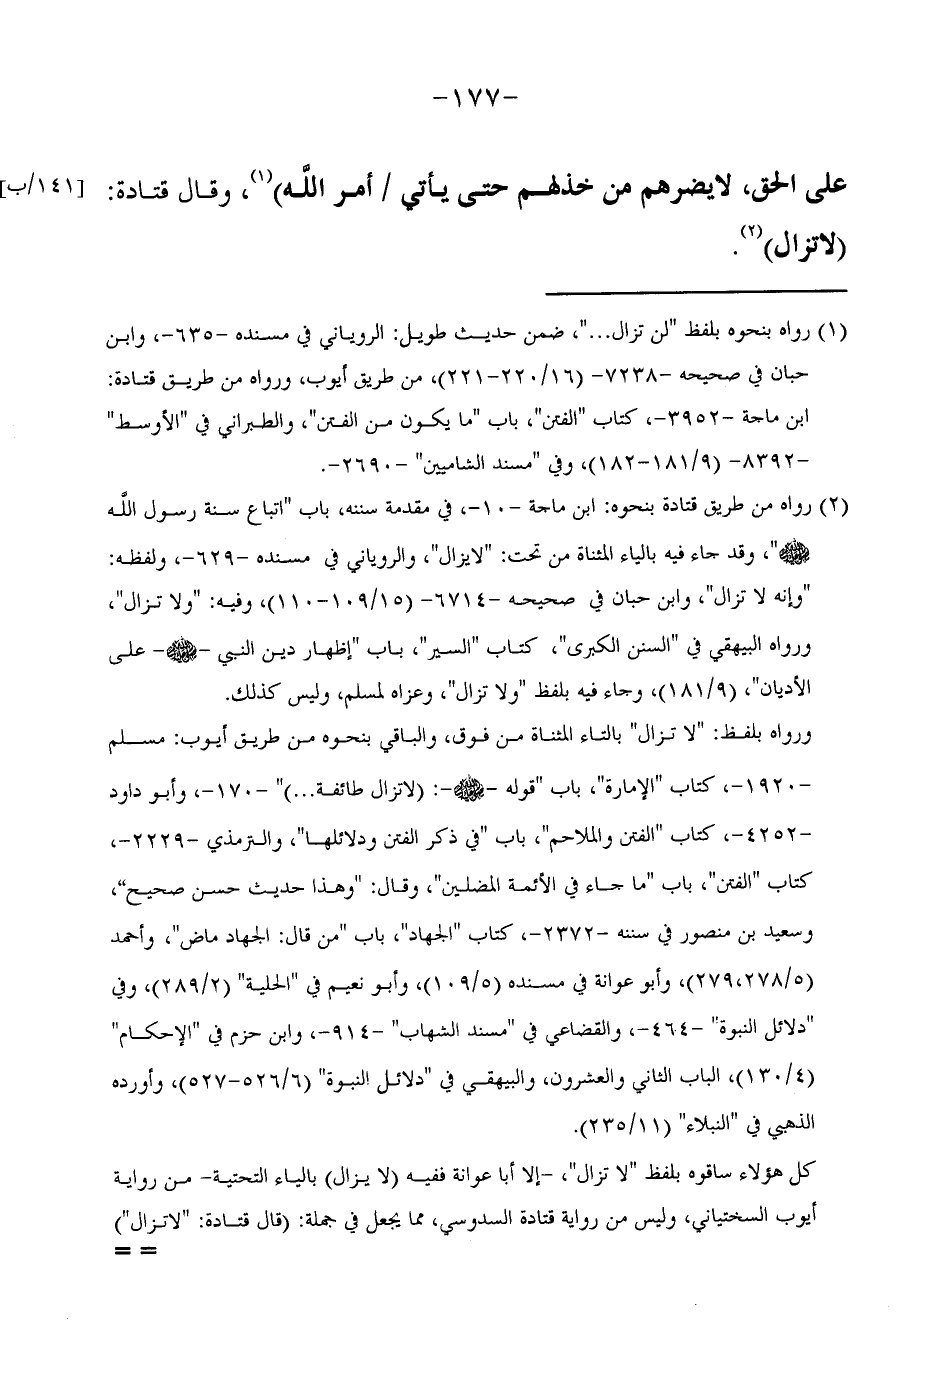 -١٧٧-
على الحق، لايضرهم من خذلهم حتى يأتي / أمر اللَّه)(١)، وقال قتادة: [١٤١/ب]
(لاتزال)(٢).
(١) رواه بنحوه بلفظ "لن تزال..."، ضمن حديث طويل: الروياني في مسنده -٦٣٥-، وابن
حبان في صحيحه -٧٢٣٨- (٢٢٠/١٦-٢٢١)، من طريق أيوب، ورواه من طريق قتادة:
ابن ماجة -٣٩٥٢-، كتاب "الفتن"، باب "ما يكون من الفتن"، والطبراني في "الأوسط"
-٨٣٩٢- (١٨١/٩-١٨٢)، وفي "مسند الشاميين" -٢٦٩٠-.
(٢) رواه من طريق قتادة بنحوه: ابن ماجة -١٠-، في مقدمة سننه، باب "اتباع سنة رسول اللَّه
ﷺ"، وقد جاء فيه بالياء المثناة من تحت: "لايزال"، والروياني في مسنده -٦٢٩-، ولفظه:
"وإنه لا تزال"، وابن حبان في صحيحه -٦٧١٤- (١٠٩/١٥-١١٠)، وفيه: "ولا تزال"،
ورواه البيهقي في "السنن الكبرى"، كتاب "السير"، باب "إظهار دين النبي -ﷺ- على
الأديان"، (١٨١/٩)، وجاء فيه بلفظ "ولا تزال"، وعزاه لمسلم، وليس كذلك.
ورواه بلفظ: "لا تزال" بالتاء المثناة من فوق، والباقي بنحوه من طريق أيوب: مسلم
-١٩٢٠-، كتاب "الإمارة"، باب "قوله -ﷺ-: (لاتزال طائفة...)" -١٧٠-، وأبو داود
-٤٢٥٢-، كتاب "الفتن والملاحم"، باب "في ذكر الفتن ودلائلها"، والترمذي -٢٢٢٩-،
كتاب "الفتن"، باب "ما جاء في الأئمة المضلين"، وقال: "وهذا حديث حسن صحيح"،
وسعيد بن منصور في سننه -٢٣٧٢-، كتاب "الجهاد"، باب "من قال: الجهاد ماض"، وأحمد
(٢٧٩،٢٧٨/٥)، وأبو عوانة في مسنده (١٠٩/٥)، وأبو نعيم في "الحلية" (٢٨٩/٢)، وفي
"دلائل النبوة" -٤٦٤-، والقضاعي في "مسند الشهاب" -٩١٤-، وابن حزم في "الإحكام"
(١٣٠/٤)، الباب الثاني والعشرون، والبيهقي في "دلائل النبوة" (٥٢٦/٦-٥٢٧)، وأورده
الذهبي في "النبلاء" (٢٣٥/١١).
كل هؤلاء ساقوه بلفظ "لا تزال"، -إلا أبا عوانة ففيه (لا يزال) بالياء التحتية- من رواية
أيوب السختياني، وليس من رواية قتادة السدوسي، مما يجعل في جملة: (قال قتادة: "لاتزال")
= =